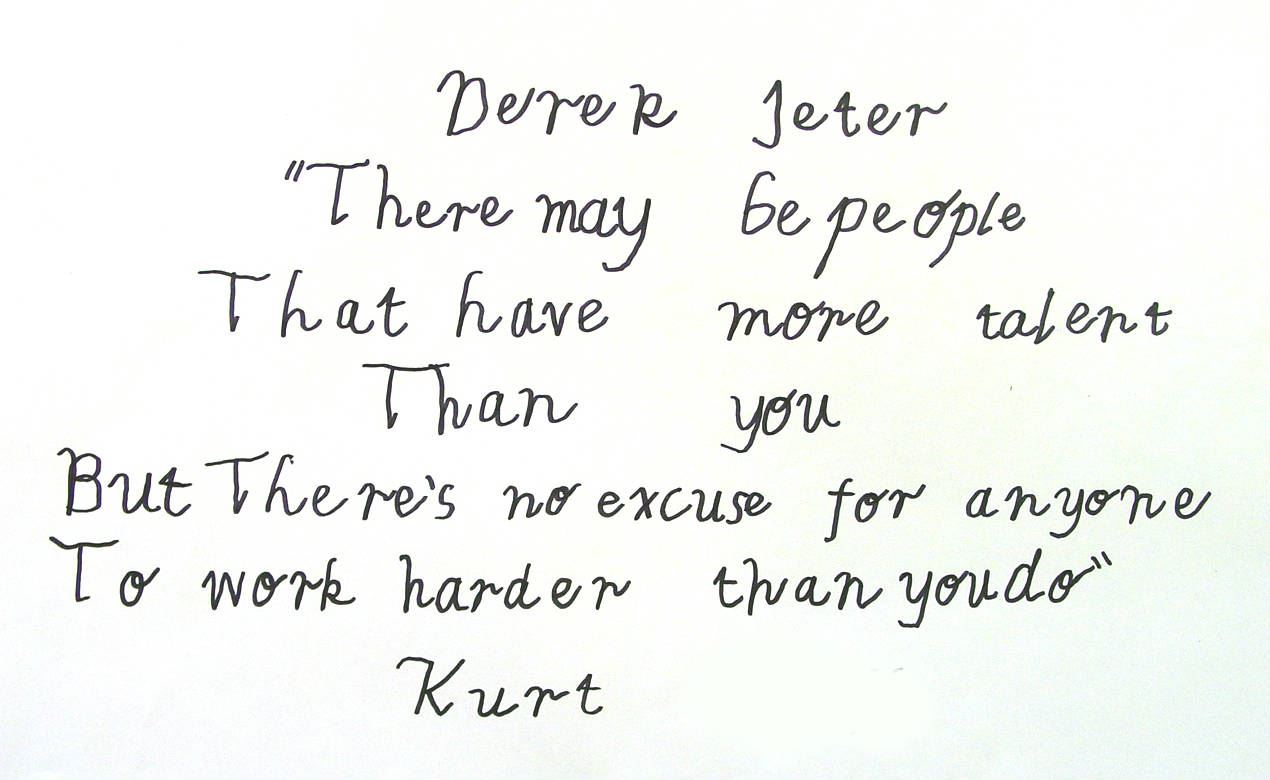 Derek Jeter
"There may be people
That have more talent
Than you
But There's no excuse for anyone
To work harder than you do"
Kurt